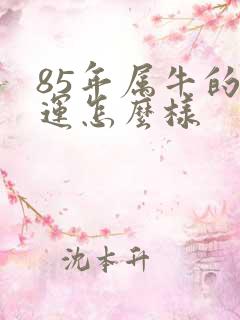 85年属牛的
運怎麼樣
沈本升